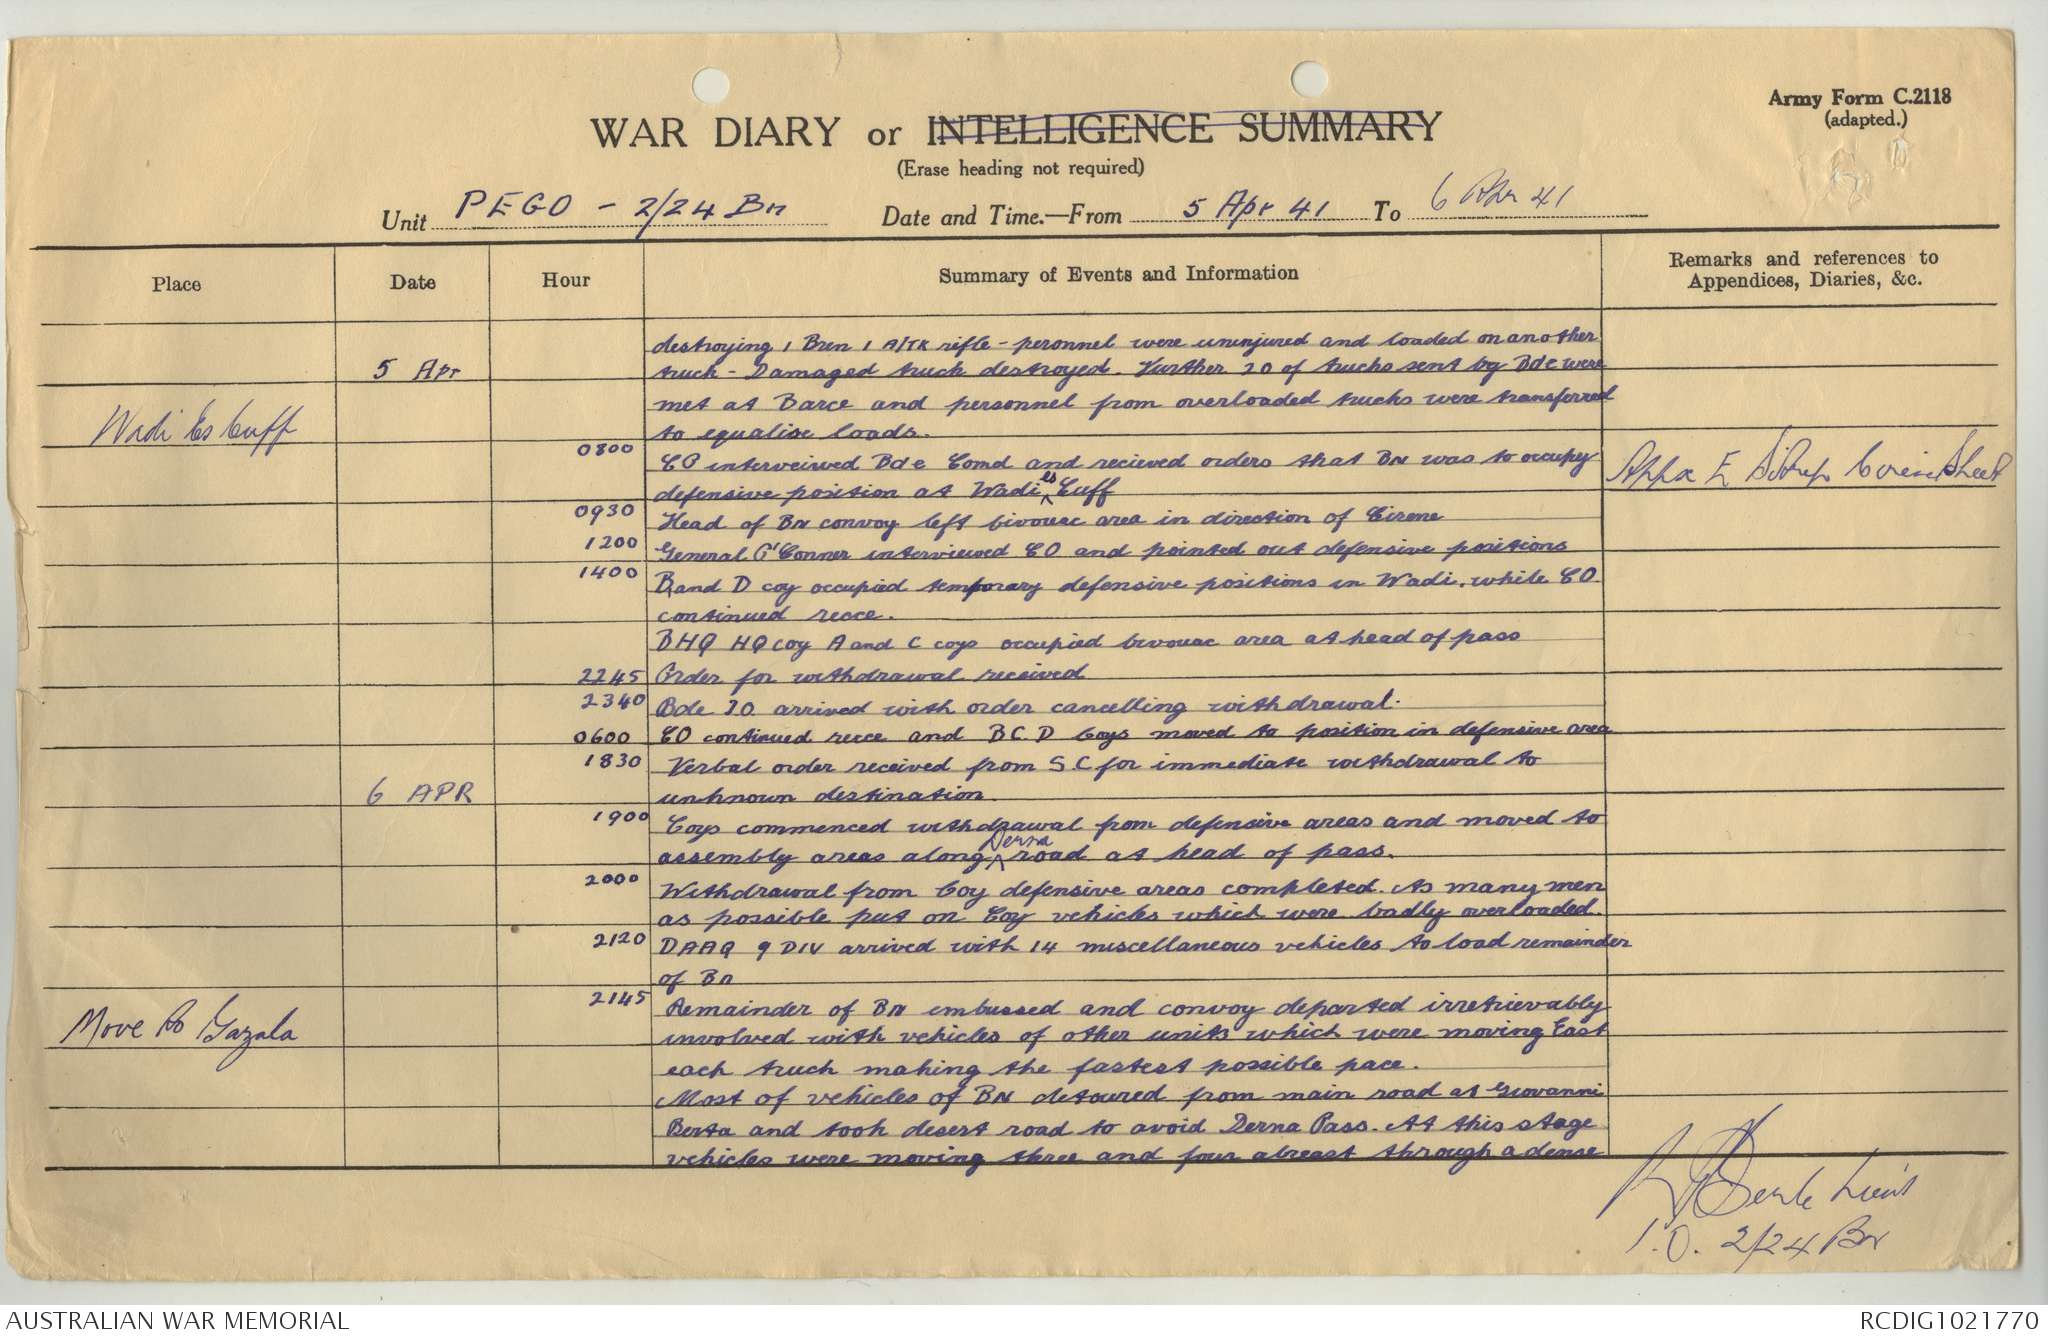 Army Form C.2118
(adapted.)
WAR DIARY or INTELLIGENCE SUMMARY
(Erase heading not required)
Unit PEGO - 2/24 Bn Date and Time.—From 5 Apr 41 To 6 Apr 41
Place Date Hour Summary of Events and Information Remarks and references to Appendices, Diaries, &c.
destroying 1 Bren 1 A/TK rifle - personnel were uninjured and loaded on another
5 Apr truck - Damaged truck destroyed. Further 20 of trucks sent by Bde were
met at Barce and personnel from overloaded trucks were transferred
Wadi Es Cuff to equalise loads.
0800 CO interveiwed Bde Comd and recieved orders that BN was to occupy
defensive position at Wadi es Cuff Appx E Sitrep Cirene Sheet
0930 Head of BN convoy left bivouac area in direction of Cirene
1200 General O'Conner interviewed CO and pointed out defensive positions
1400 B and D coy occupied temporary defensive positions in Wadi, while CO
continued recce.
BHQ HQ coy A and C coys occupied bivouac area at head of pass
2245 Order for withdrawal received
2340 Bde IO arrived with order cancelling withdrawal.
0600 CO continued recce and B C. D Coys moved to position in defensive area
1830 Verbal order received from S C for immediate withdrawal to
6 APR unknown destination.
1900 Coys commenced withdrawal from defensive areas and moved to
assembly areas along Derna road at head of pass.
2000 Withdrawal from Coy defensive areas completed. As many men
as possible put on Coy vehicles which were badly overloaded.
2120 DAAQ 9 DIV arrived with 14 miscellaneous vehicles to load remainder
of Bn
2145 Remainder of BN embussed and convoy departed irretrievably
Move to Gazala involved with vehicles of other units which were moving East
each truck making the fastest possible pace.
Most of vehicles of BN detoured from main road at Giovanni
Berta and took desert road to avoid Derna Pass. At this stage
vehicles were moving three and four abreast through a dense
Lieut
I.O. 2/24 Bn
AUSTRALIAN WAR MEMORIAL
RCDIG1021770